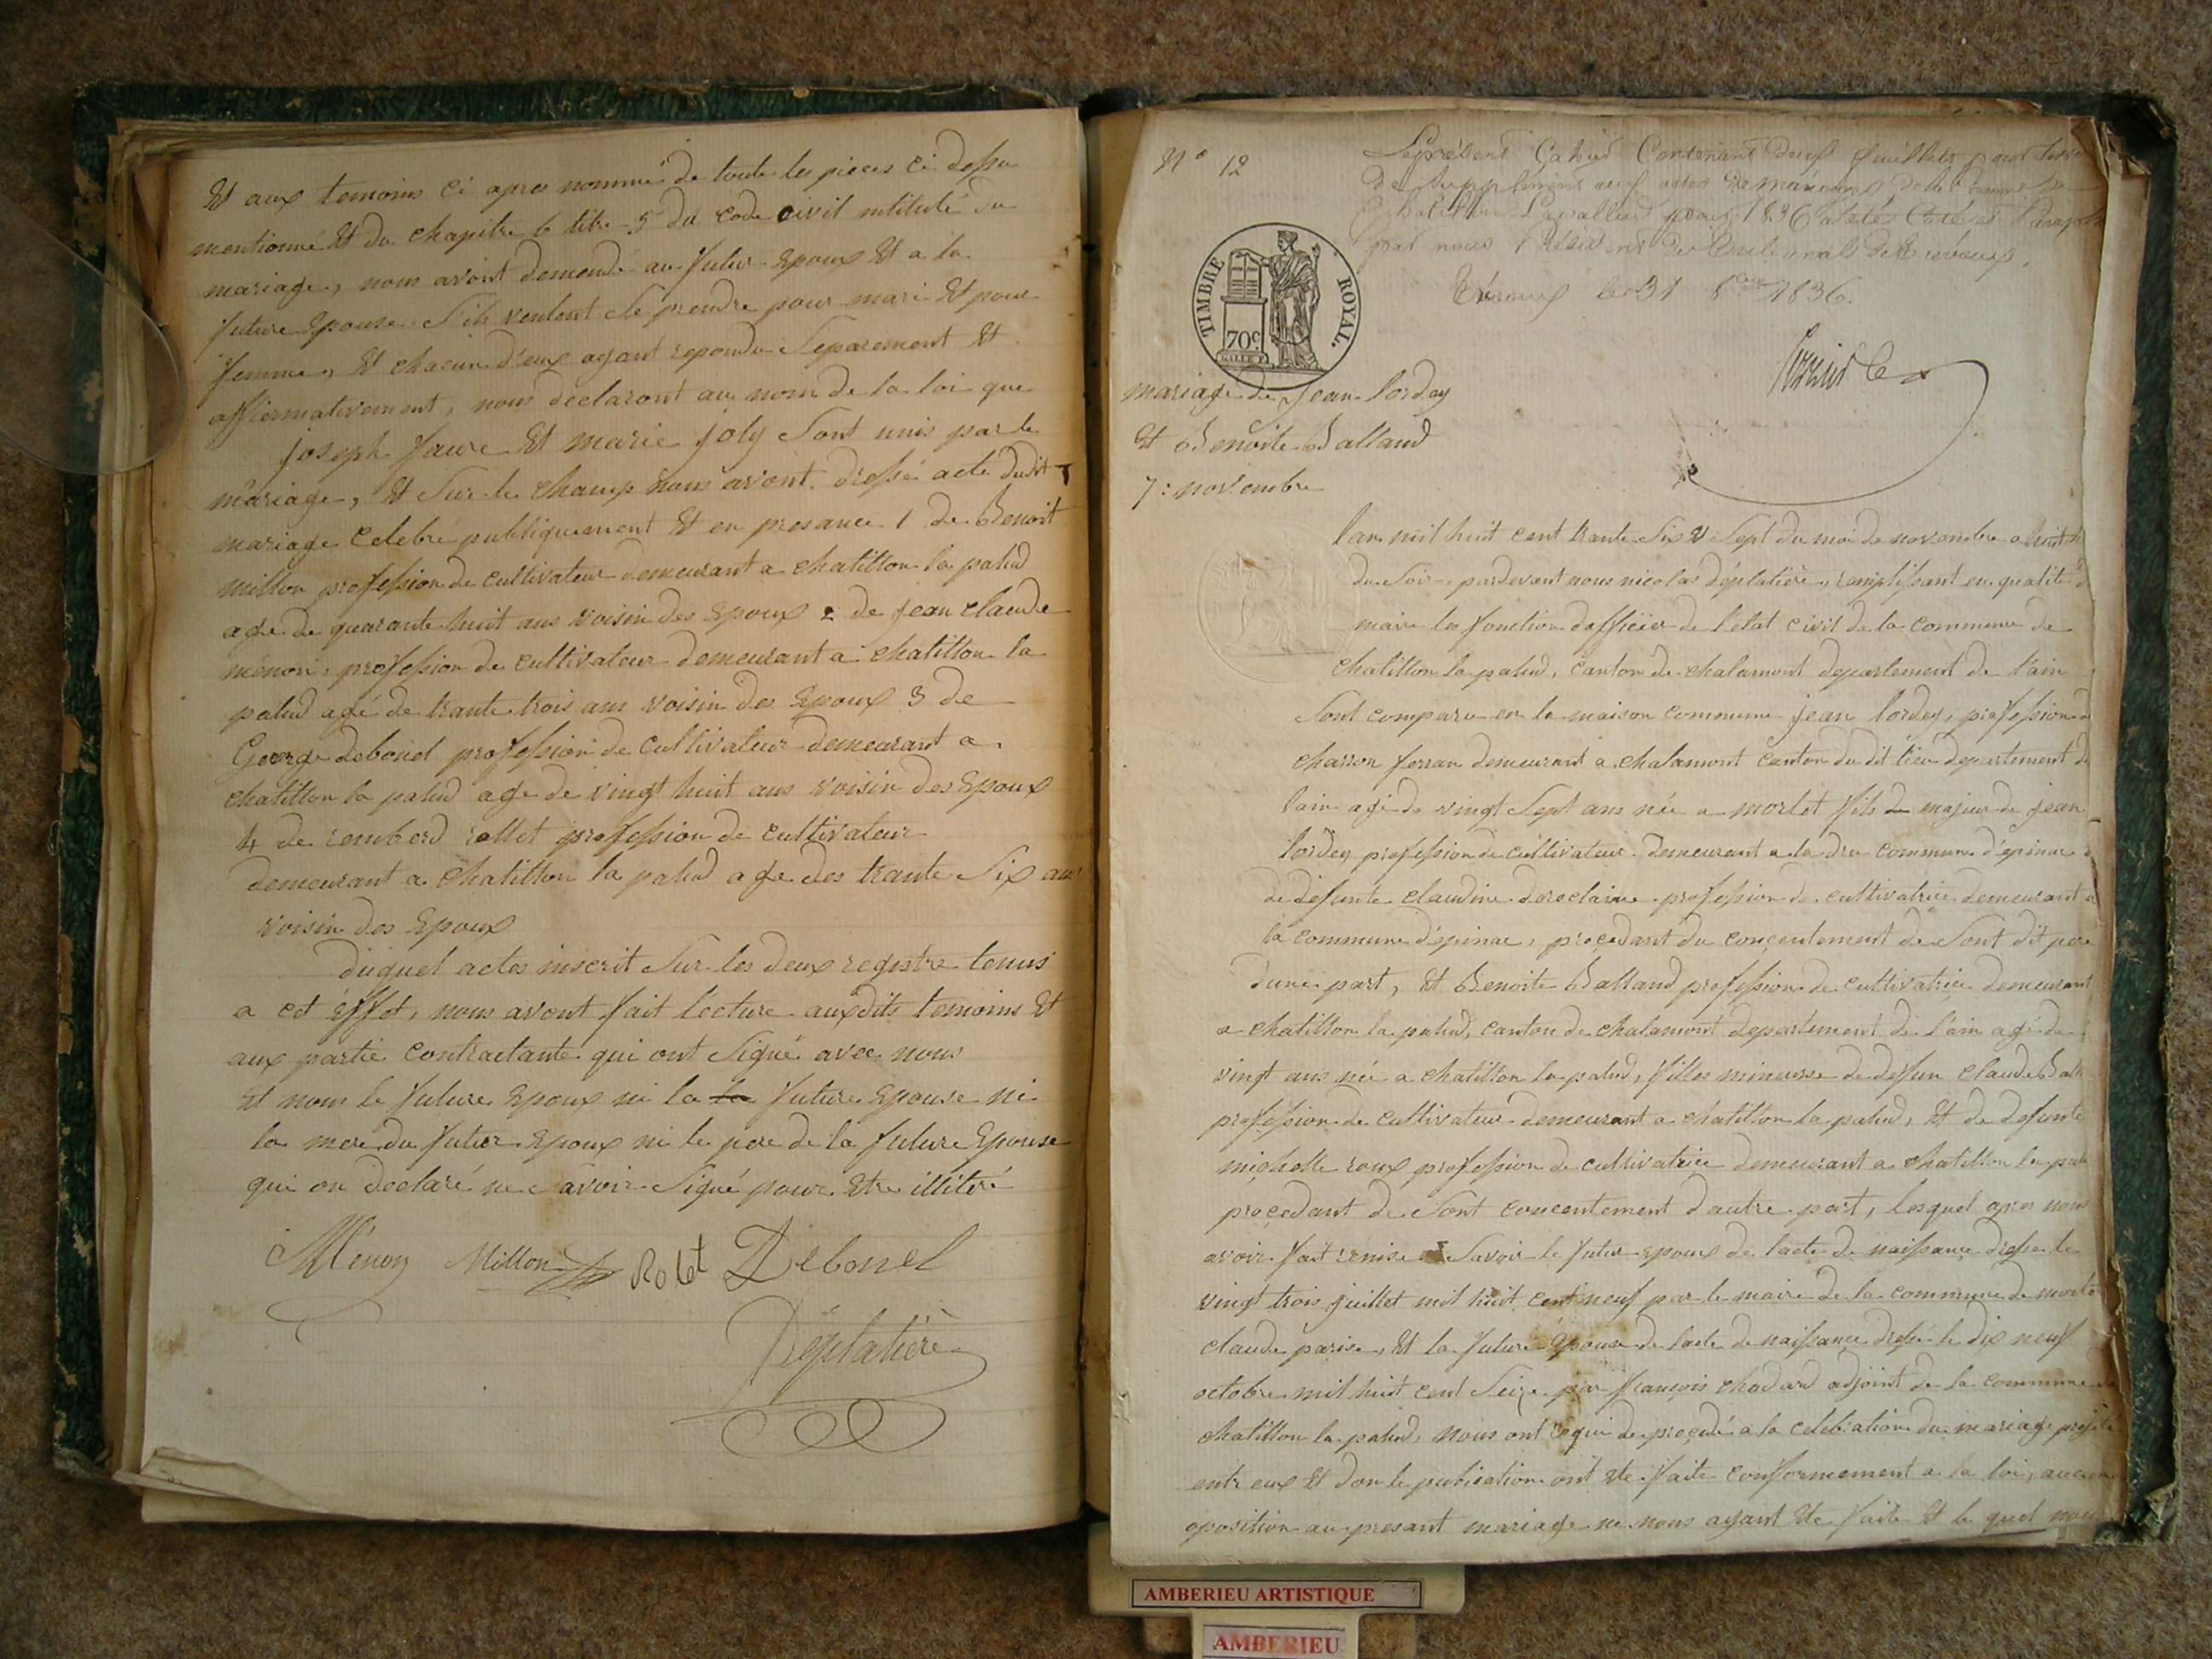 Et aux temoins ci apres nommé de toute les pieces ci dessu
mentionné Et du chapitre 6 titre 5 du code civil intitulé du
mariage, nous avont demandé au futur Epoux Et a la
future Epouse S'ils veulent Se prendre pour mari Et pour
femme, Et chacun d'eux ayant repondu Separement Et
affirmativement, nous declaront au nom de la loi que
joseph faure Et marie joly Sont unis par le
mariage, Et Sur le champ nous avont dressé acte dudit
mariage Celebré publiquement Et en presance 1 de Benoit
millon profession de cultivateur demeurant a chatillon la palud
age de quarante huit ans voisin des Epoux 2 de jean claude
ménon, profession de cultivateur demeurant a chatillon la
palud agé de trante trois ans voisin des Epoux 3 de
George debonel profession de cultivateur demeurant a
chatillon la palud age de vingt huit ans voisin des Epoux
4 de remberd rollet profession de cultivateur
demeurant a chatillon la palud age des trante Six ans
voisin des Epoux
duquel actes inscrit Sur les deux registre tenus
a cet éffet, nous avont fait lecture auxdits temoins Et
aux partie contractante qui ont Signé avec nous
Et nom le future Epoux ni la la future Epouse ni
la mere du futur Epoux ni le pere de la future Epouse
qui on declaré ne Savoir Signé pour Etre illitéré
Ménon Millon Rolet Debonel
Déplatière
N° 12
Le présent Cahier Contenant deux feuillets pour Servir
de Supplément aux actes de mariages de la Commune de
Chatillon Lapallud pour 1836 a été Coté et Paraphé
par nous Président du Tribunal de Trévoux.
Trévoux le 31 8bre 1836.
TIMBRE ROYAL.
70c.
mariage de Jean lordey
Et Benoite Balland
7: novembre
lan mil huit cent trante Six Et Sept du moi de novembre a huit
du Soir, pardevant nous nicolas déplatière, remplissant en qualité
maire les fonction dofficier de l'etat civil de la commune de
chatillon la palud, canton de chalamont departement de l'ain
Sont comparu en la maison commune jean lordey, profession
charron ferran demeurant a chalamont canton du dit lieu departement de
lain agé de vingt Sept ans née a mortet fils de majeur de jean
lordey profession de cultivateur demeurant a la dru commune d'epinac
de defunte claudine doroclaine profession de cultivatrice demeurant a
la commune d'epinac, procedant du concentement de Sont dit pere
d'une part, Et Benoite Balland profession de cultivatrice demeurant
a chatillon la palud, canton de chalamont departement de l'ain agé de
vingt ans née a chatillon la palud, filles mineurse de defun claude Ball
profession de cultivateur demeurant a chatillon la palud, Et de defunte
michelle roux profession de cultivatrice demeurant a chatillon la palu
procedant de Sont concentement d'autre part, lesquel apres nous
avoir fait remise Savoir le futur epoux de lacte de naissance dressé le
vingt trois juillet mil huit cent neuf par le maire de la commune de morte
claude parise, Et la future Epouse de lacte de naissance dressé le dix neuf
octobre mil huit cent Seize par françois chadard adjoint de la commune
chatillon la palud, nous ont requi de procedé a la celebration du mariage projeté
entr eux Et don le publication ont Ete faite conformement a la loi, aucune
oposition au presant mariage ne nous ayant Ete faite Et le quel nous
AMBERIEU ARTISTIQUE
AMBERIEU